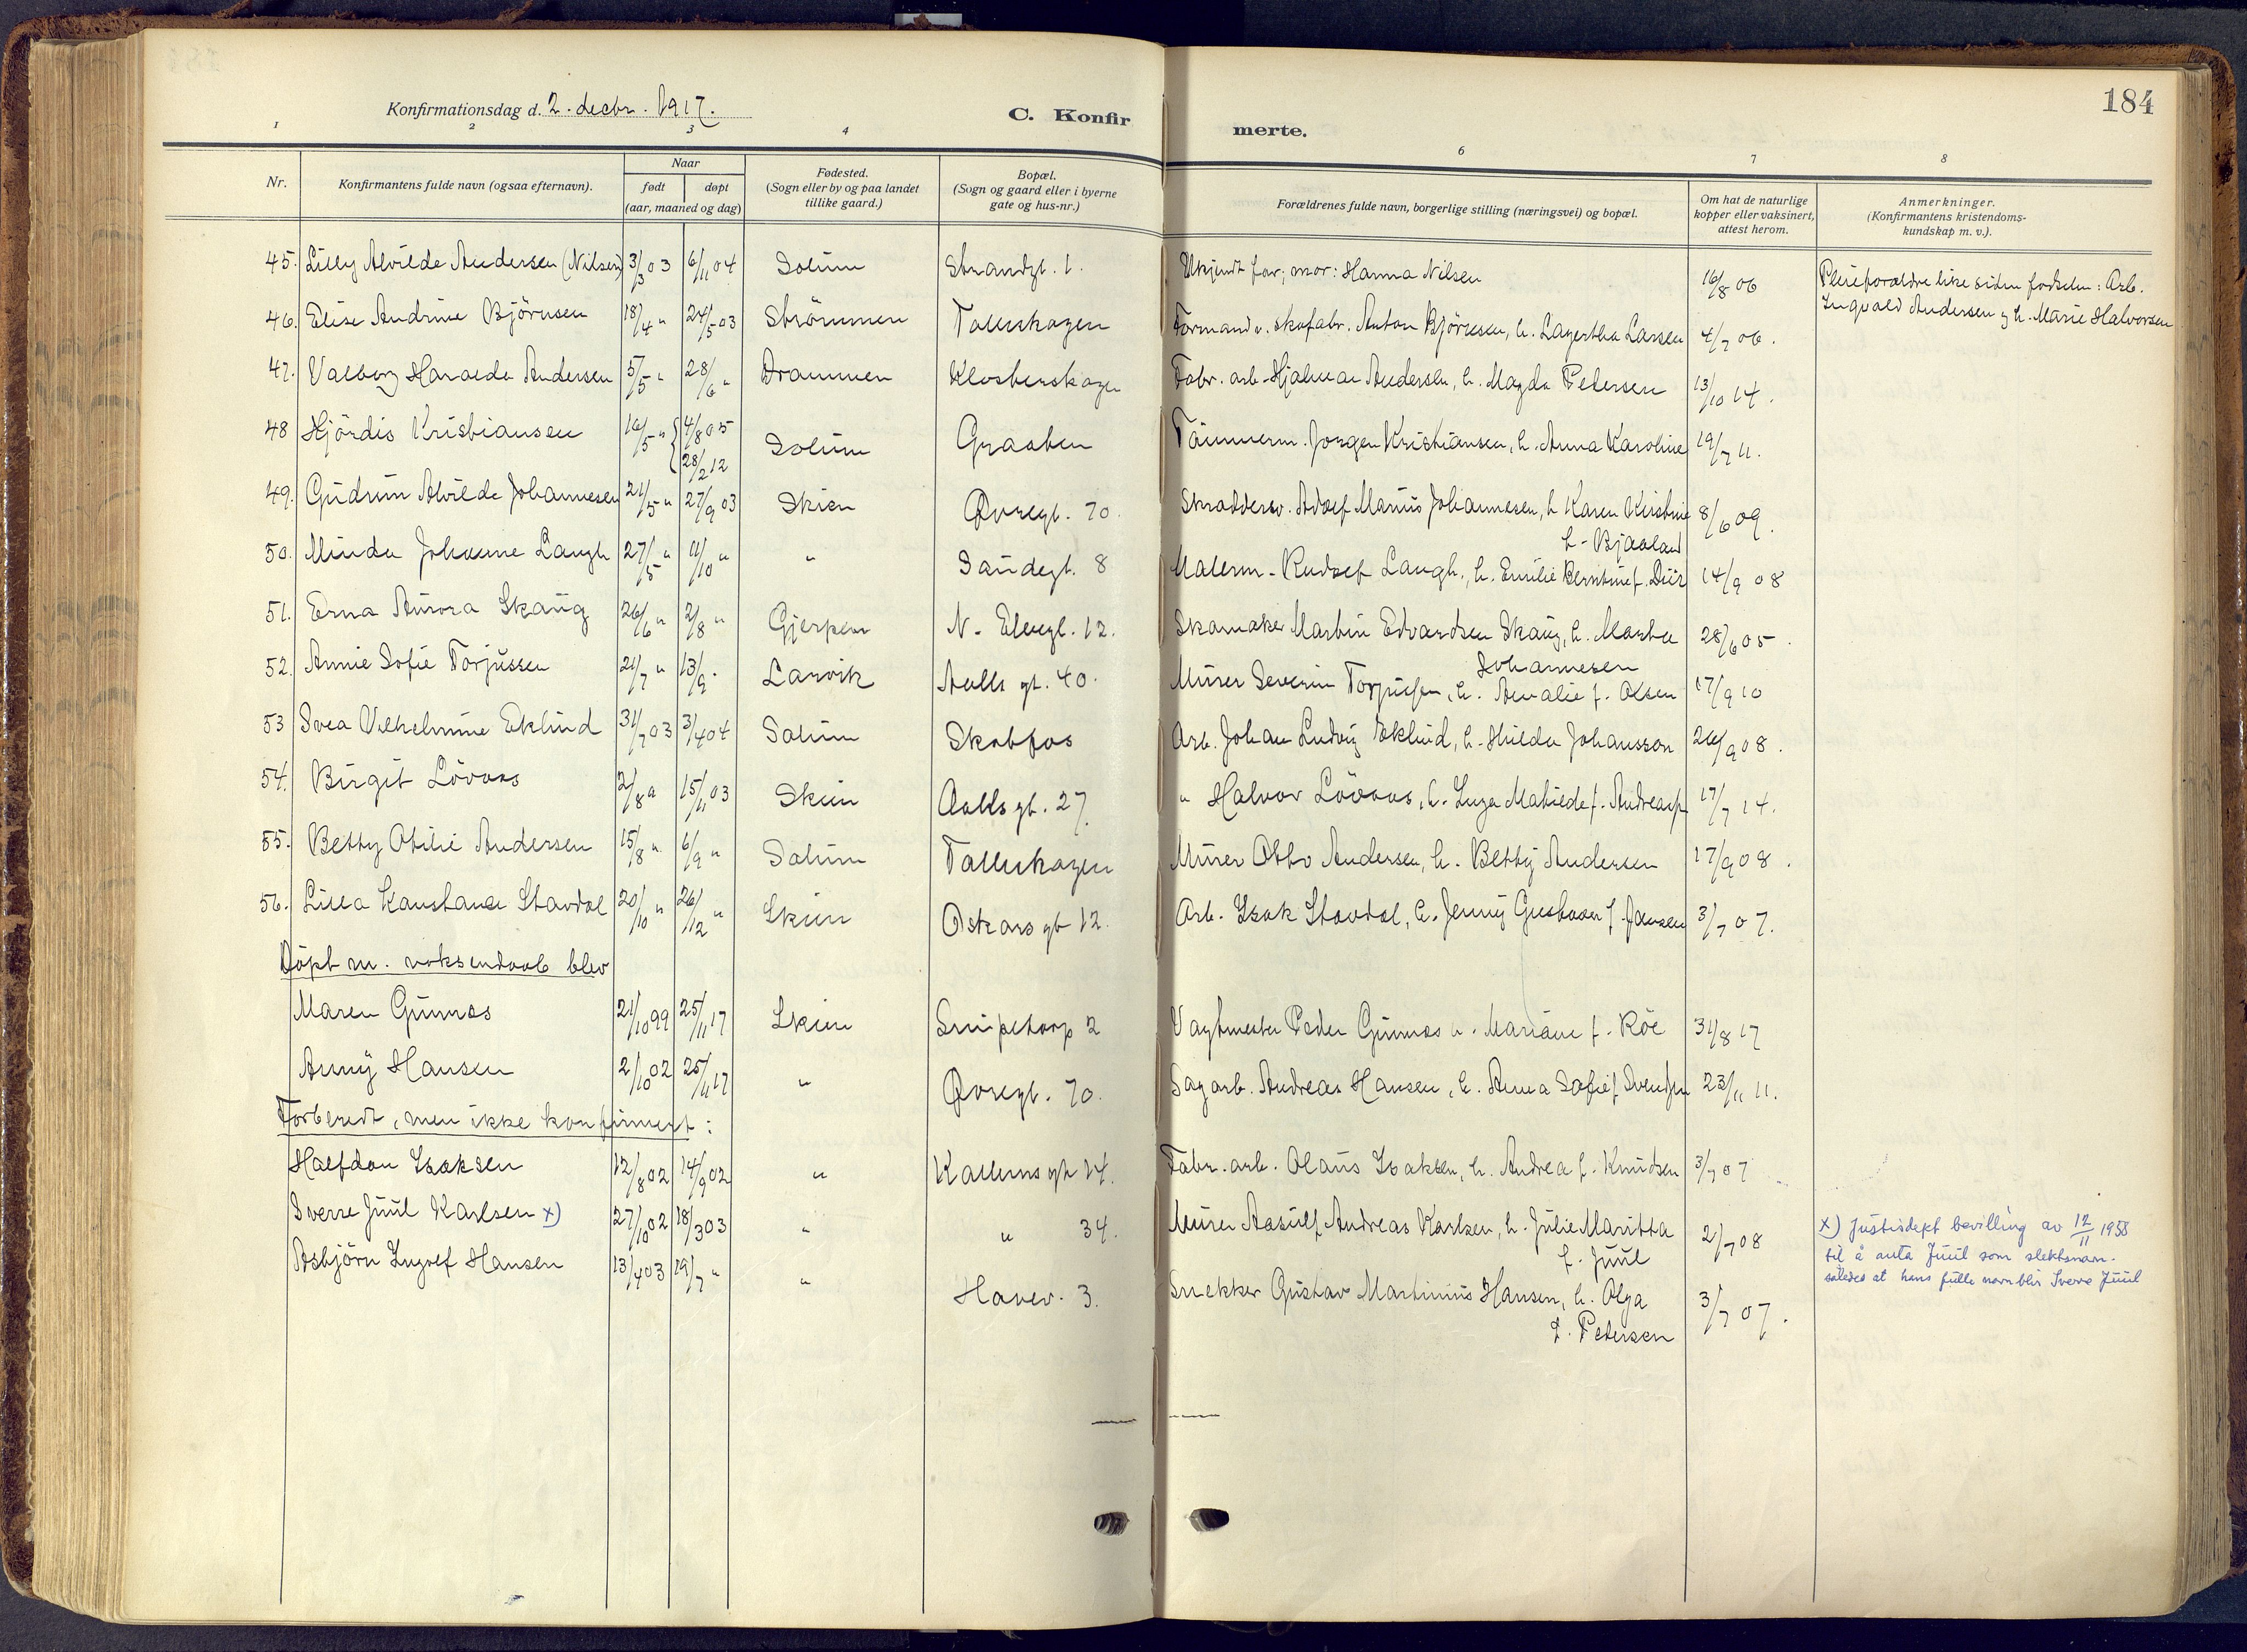 184
Konfirmationsdag d. 2. decbr. 1917.
C. Konfirmerte.
1 2 3 4 6 7 8
Nr. Konfirmantens fulde navn (ogsaa efternavn). Naar født døpt (aar, maaned og dag) Fødested. (Sogn eller by og paa landet tillike gaard.) Bopæl. (Sogn og gaard eller i byerne gate og hus-nr.) Forældrenes fulde navn, borgerlige stilling (næringsvei) og bopæl. Om hat de naturlige kopper eller vaksinert, attest herom. Anmerkninger. (Konfirmantens kristendoms-kundskap m. v.).
45. Lilly Alvilde Andersen (Nilsen) 3/3 03 6/11 04 Solum Strandgt. 1. Ukjendt far; mor: Hanna Nilsen 16/8 06 Pleieforældre like siden fødselen: Arb. Ingvald Andersen og h. Marie Halvorsen
46. Elise Andrine Björnsen 18/4 " 24/5 03 Strömmen Tollnshagen Formand v. skofabr. Anton Björnsen, h. Lagertha Larsen 4/7 06.
47. Valborg Haralda Andersen 5/5 " 28/6 " Drammen Klosterskogen Fabr. arb. Hjalmar Andersen, h. Magda Petersen 13/10 14.
48 Hjördis Kristiansen 16/5 " { 4/8 05 28/2 12 Solum Graaten Tömmerm. Jorgen Kristiansen, h. Anna Karoline 19/7 11.
49. Gudrun Alvilde Johannesen 21/5 " 27/9 03 Skien Övregt. 70 Skræddersv. Adolf Marius Johannesen, h Karen Kirstine f. Bjaaland 8/6 09.
50. Minda Johanne Laugh 27/5 " 11/10 " " Sandegt. 8 Malerm. Rudolf Laugh, h. Emilie Berntine f. Diir 14/9 08
51. Erna Aurora Skaug 26/6 " 2/8 " Gjerpen N. Elvegt. 12. Skomaker Martin Edvardsen Skaug, h. Martha Johannesen 28/6 05.
52. Annie Sofie Torjussen 21/7 " 13/9 " Larvik Aalls gt. 40. Murer Severin Torjussen, h. Amalie f. Olsen 17/9 10
53 Svea Vilhelmine Eklund 31/7 03 3/4 04 Solum Skotfos Arb. Johan Ludvig Eklund, h. Hilda Johansson 26/9 08.
54. Birgit Lövaas 2/8 " 15/11 03 Skien Aalls gt. 27. " Halvor Lövaas, h. Inga Matilde f. Andreass. 17/7 14.
55. Betty Otilie Andersen 15/8 " 6/9 " Solum Tollnshagen Murer Otto Andersen, h. Betty Andersen 17/9 08.
56. Lilla Konstance Stavdal 20/10 " 26/12 " Skien Oskars gt 12. Arb. Isak Stavdal, h. Jenny Gustava f. Jansen 3/7 07.
Döpt m. voksendaab blev
Maren Gumæs 21/10 99 25/11 17 Skien Snipetorp 2 Vagtmester Peder Gumæs h. Mariane f. Röe 31/8 17
Anny Hansen 2/10 02 25/11 17 " Övregt. 70. Sagarb. Andreas Hansen, h. Anna Sofie f. Svensen 23/11 11.
Forberedt, men ikke konfirmert:
Halfdan Isaksen 12/8 02 14/9 02 " Kallems gt 14. Fabr. arb. Olaus Isaksen, h. Andrea f. Knudsen 3/7 07
Sverre Juul Karlsen x) 27/10 02 18/3 03 " " 34. Murer Aasulf Andreas Karlsen, h. Julie Maritta f. Juul 2/7 08 x) Justisdept bevilling av 12/11 1958 til å anta Juul som slektsnavn. således at hans fulle navn blir Sverre Juul
Asbjörn Ingolf Hansen 13/4 03 19/7 " " Havev. 3. Snekker Gustav Martinius Hansen, h. Olga f. Petersen 3/7 07.